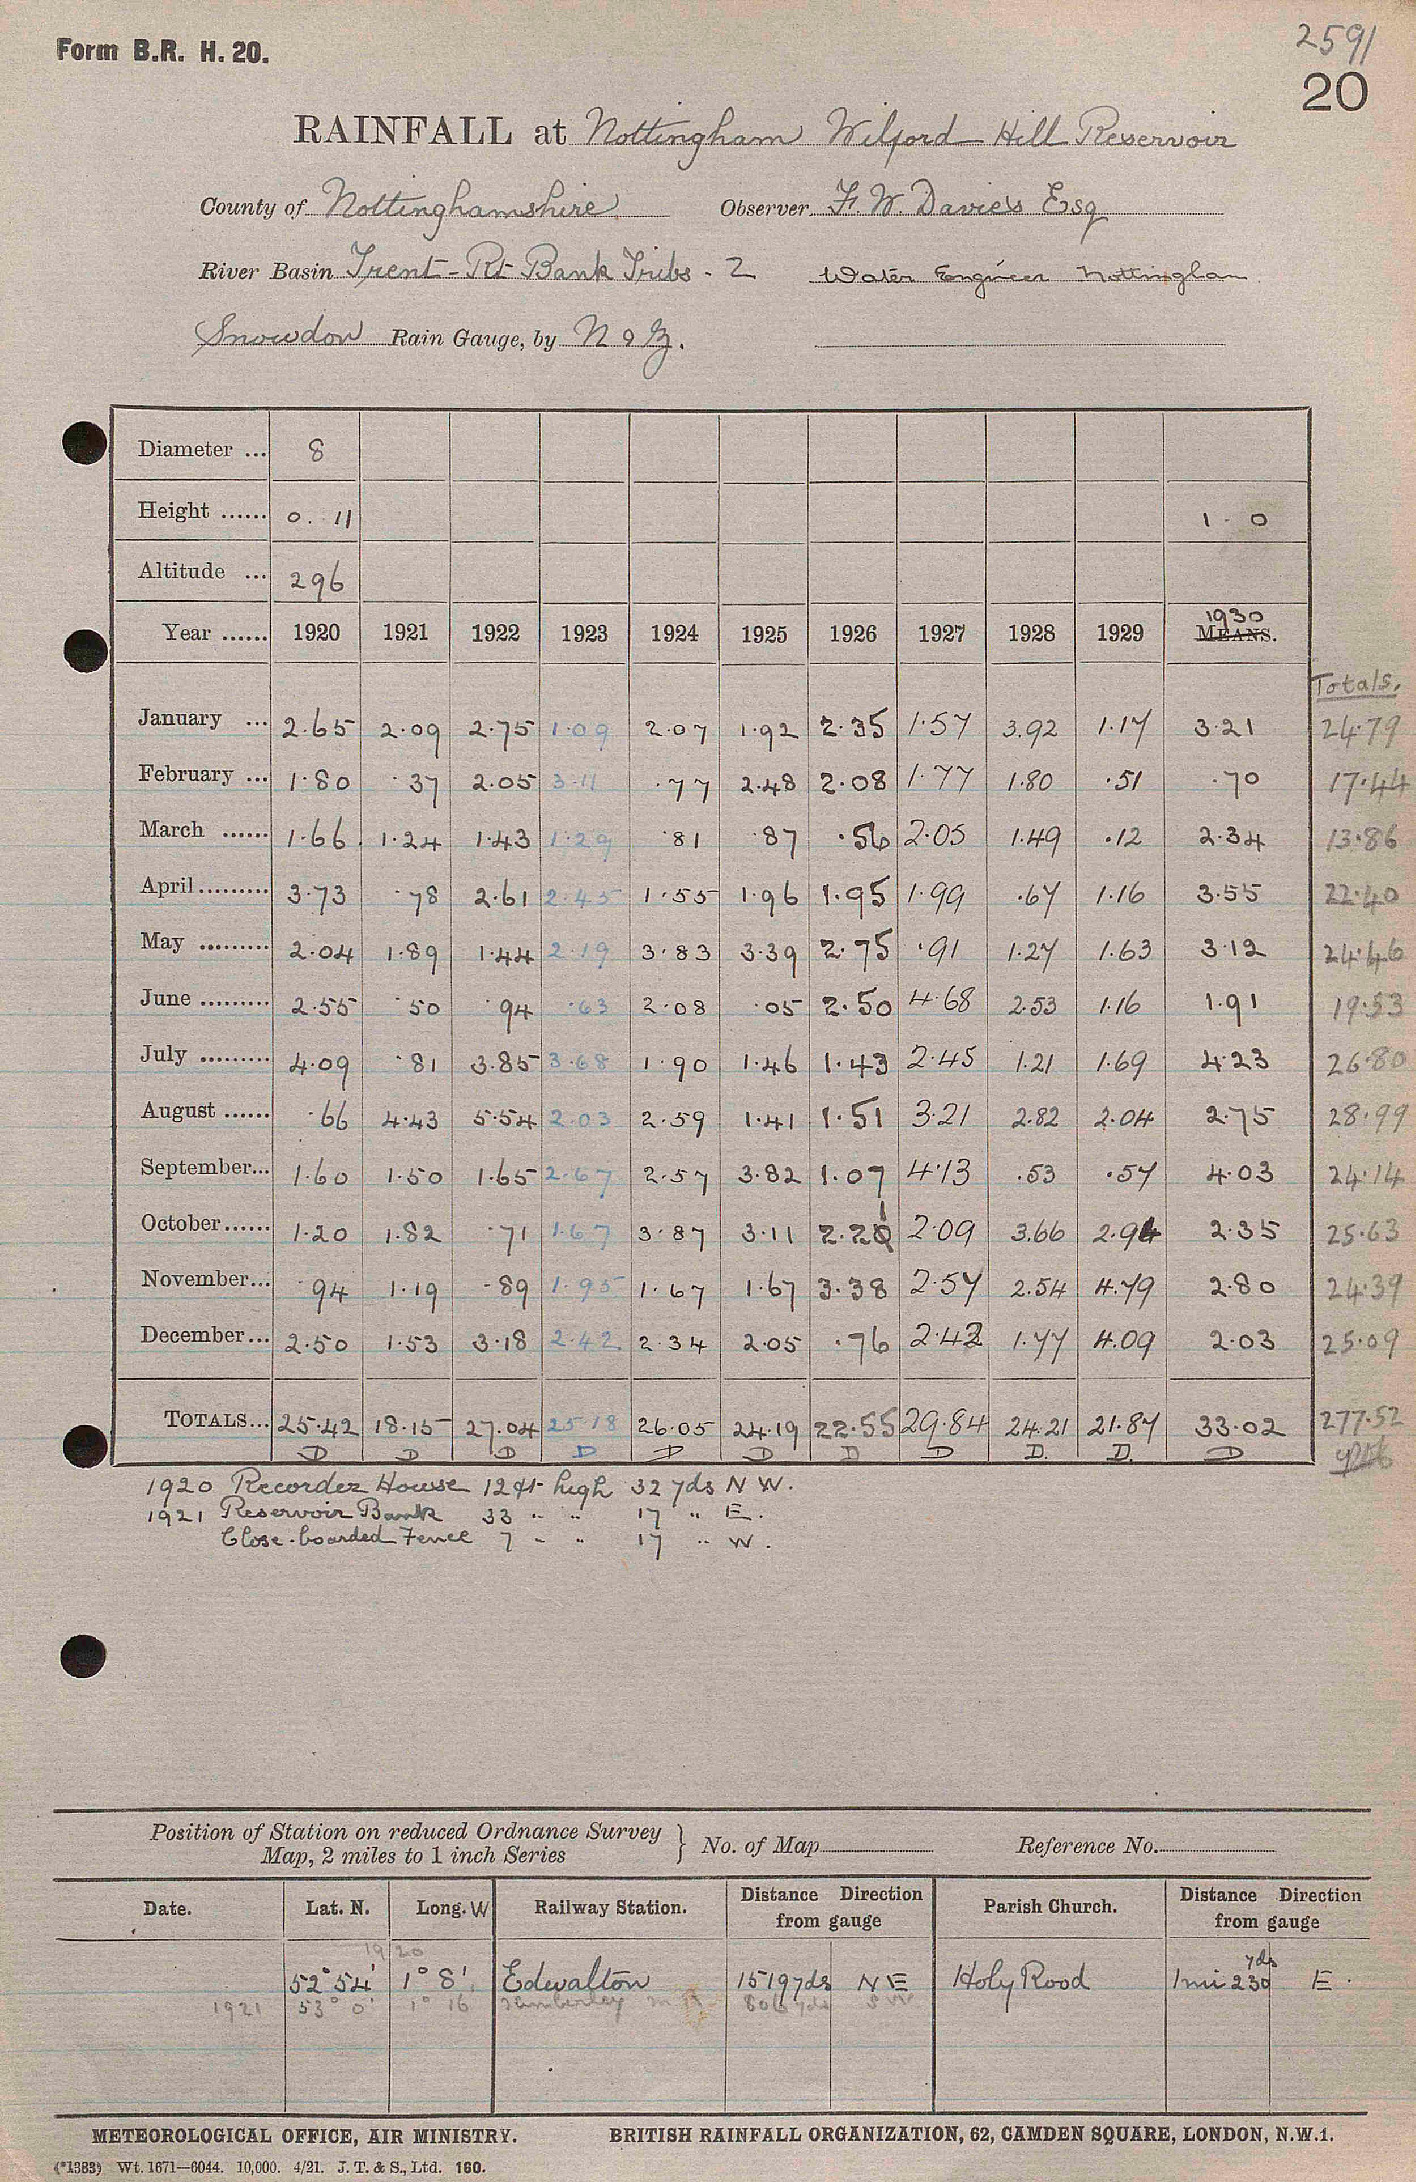 Form B.R. H. 20.
2591
20
RAINFALL at Nottingham Wilford Hill Reservoir
County of Nottinghamshire Observer F. W. Davies Esq
River Basin Trent - Rt Bank Tribs - 2 Water Engineer Nottingham
Snowdon Rain Gauge, by N & Z.
Diameter ... 8
Height ...... 0. 11 1 - 0
Altitude ... 296
Year ...... 1920 1921 1922 1923 1924 1925 1926 1927 1928 1929 1930 MEANS.
Totals.
January ... 2.65 2.09 2.75 1.09 2.07 1.92 2.35 1.57 3.92 1.17 3.21 24.79
February ... 1.80 .37 2.05 3.11 .77 2.48 2.08 1.77 1.80 .51 .70 17.44
March ...... 1.66 1.24 1.43 1.29 .81 .87 .56 2.05 1.49 .12 2.34 13.86
April ......... 3.73 .78 2.61 2.45 1.55 1.96 1.95 1.99 .67 1.16 3.55 22.40
May ......... 2.04 1.89 1.44 2.19 3.83 3.39 2.75 .91 1.27 1.63 3.12 24.46
June ......... 2.55 .50 .94 .63 2.08 .05 2.50 4.68 2.53 1.16 1.91 19.53
July ......... 4.09 .81 3.85 3.68 1.90 1.46 1.43 2.45 1.21 1.69 4.23 26.80
August ...... .66 4.43 5.54 2.03 2.59 1.41 1.51 3.21 2.82 2.04 2.75 28.99
September... 1.60 1.50 1.65 2.67 2.57 3.82 1.07 4.13 .53 .57 4.03 24.14
October...... 1.20 1.82 .71 1.67 3.87 3.11 2.21 2.09 3.66 2.94 2.35 25.63
November... .94 1.19 .89 1.95 1.67 1.67 3.38 2.57 2.54 4.79 2.80 24.39
December... 2.50 1.53 3.18 2.42 2.34 2.05 .76 2.42 1.77 4.09 2.03 25.09
TOTALS... 25.42 18.15 27.04 25.18 26.05 24.19 22.55 29.84 24.21 21.87 33.02 277.52
D D D D D D D D D. D. D
1920 Recorder House 12 ft high 32 yds N W.
1921 Reservoir Bank 33 " " 17 " E.
Close-boarded Fence 7 " " 17 " W.
Position of Station on reduced Ordnance Survey
Map, 2 miles to 1 inch Series } No. of Map Reference No.
Date. Lat. N. Long. W Railway Station. Distance Direction from gauge Parish Church. Distance Direction from gauge
1920
52° 54' 1° 8' Edwalton 1519 yds N E Holy Rood 1 mi 230 yds E.
1921 53° 0' 1° 16 806 yds S W
METEOROLOGICAL OFFICE, AIR MINISTRY. BRITISH RAINFALL ORGANIZATION, 62, CAMDEN SQUARE, LONDON, N.W.1.
(*1383) Wt. 1671—6044. 10,000. 4/21. J. T. & S., Ltd. 160.